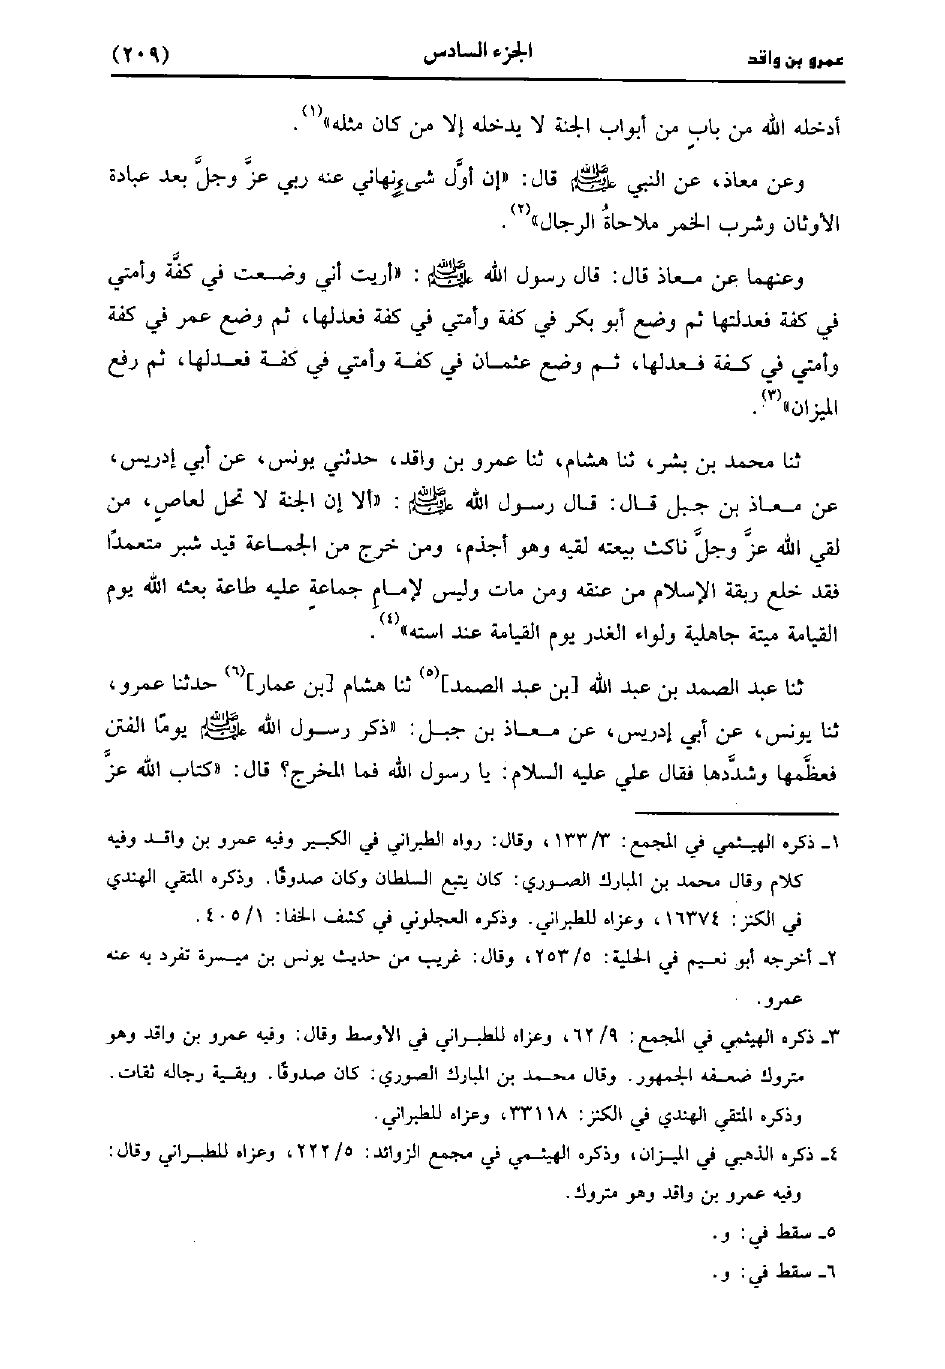 عمرو بن واقد الجزء السادس (٢٠٩)
أدخله الله من باب من أبواب الجنة لا يدخله إلا من كان مثله»(١).
وعن معاذ، عن النبي ﷺ قال: «إن أوَّل شيءٍ نهاني عنه ربي عزَّ وجلَّ بعد عبادة
الأوثان وشرب الخمر ملاحاةُ الرجال»(٢).
وعنهما عن معاذ قال: قال رسول الله ﷺ : «أريت أني وضعت في كفَّة وأمتي
في كفة فعدلتها ثم وضع أبو بكر في كفة وأمتي في كفة فعدلها، ثم وضع عمر في كفة
وأمتي في كفة فعدلها، ثم وضع عثمان في كفة وأمتي في كفة فعدلها، ثم رفع
الميزان»(٣).
ثنا محمد بن بشر، ثنا هشام، ثنا عمرو بن واقد، حدثني يونس، عن أبي إدريس،
عن معاذ بن جبل قال: قال رسول الله ﷺ : «ألا إن الجنة لا تحل لعاصٍ، من
لقي الله عزَّ وجلَّ ناكث بيعته لقيه وهو أجذم، ومن خرج من الجماعة قيد شبر متعمدًا
فقد خلع ربقة الإسلام من عنقه ومن مات وليس لإمامِ جماعةٍ عليه طاعة بعثه الله يوم
القيامة ميتة جاهلية ولواء الغدر يوم القيامة عند استه»(٤).
ثنا عبد الصمد بن عبد الله [بن عبد الصمد](٥) ثنا هشام [بن عمار](٦) حدثنا عمرو،
ثنا يونس، عن أبي إدريس، عن معاذ بن جبل: «ذكر رسول الله ﷺ يومًا الفتن
فعظَّمها وشدَّدها فقال علي عليه السلام: يا رسول الله فما المخرج؟ قال: «كتاب الله عزَّ
١ـ ذكره الهيثمي في المجمع: ١٣٣/٣، وقال: رواه الطبراني في الكبير وفيه عمرو بن واقد وفيه
كلام وقال محمد بن المبارك الصوري: كان يتبع السلطان وكان صدوقًا. وذكره المتقي الهندي
في الكنز: ١٦٣٧٤، وعزاه للطبراني. وذكره العجلوني في كشف الخفا: ٤٠٥/١.
٢ـ أخرجه أبو نعيم في الحلية: ٢٥٣/٥، وقال: غريب من حديث يونس بن ميسرة تفرد به عنه
عمرو.
٣ـ ذكره الهيثمي في المجمع: ٦٢/٩، وعزاه للطبراني في الأوسط وقال: وفيه عمرو بن واقد وهو
متروك ضعفه الجمهور. وقال محمد بن المبارك الصوري: كان صدوقًا. وبقية رجاله ثقات.
وذكره المتقي الهندي في الكنز: ٣٣١١٨، وعزاه للطبراني.
٤ـ ذكره الذهبي في الميزان، وذكره الهيثمي في مجمع الزوائد: ٢٢٢/٥، وعزاه للطبراني وقال:
وفيه عمرو بن واقد وهو متروك.
٥ـ سقط في: و.
٦ـ سقط في: و.